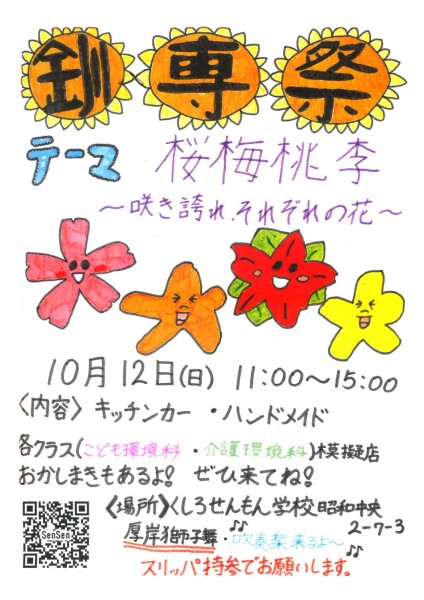 釧専祭
テーマ 桜梅桃李
～咲き誇れ、それぞれの花～
10月12日(日) 11:00～15:00
〈内容〉キッチンカー ・ハンドメイド
各クラス(こども環境科・介護環境科)模擬店
おかしまきもあるよ! ぜひ来てね!
SenSen
〈場所〉くしろせんもん学校 昭和中央
2-7-3
厚岸獅子舞・吹奏楽来るよ～♫
スリッパ持参でお願いします。